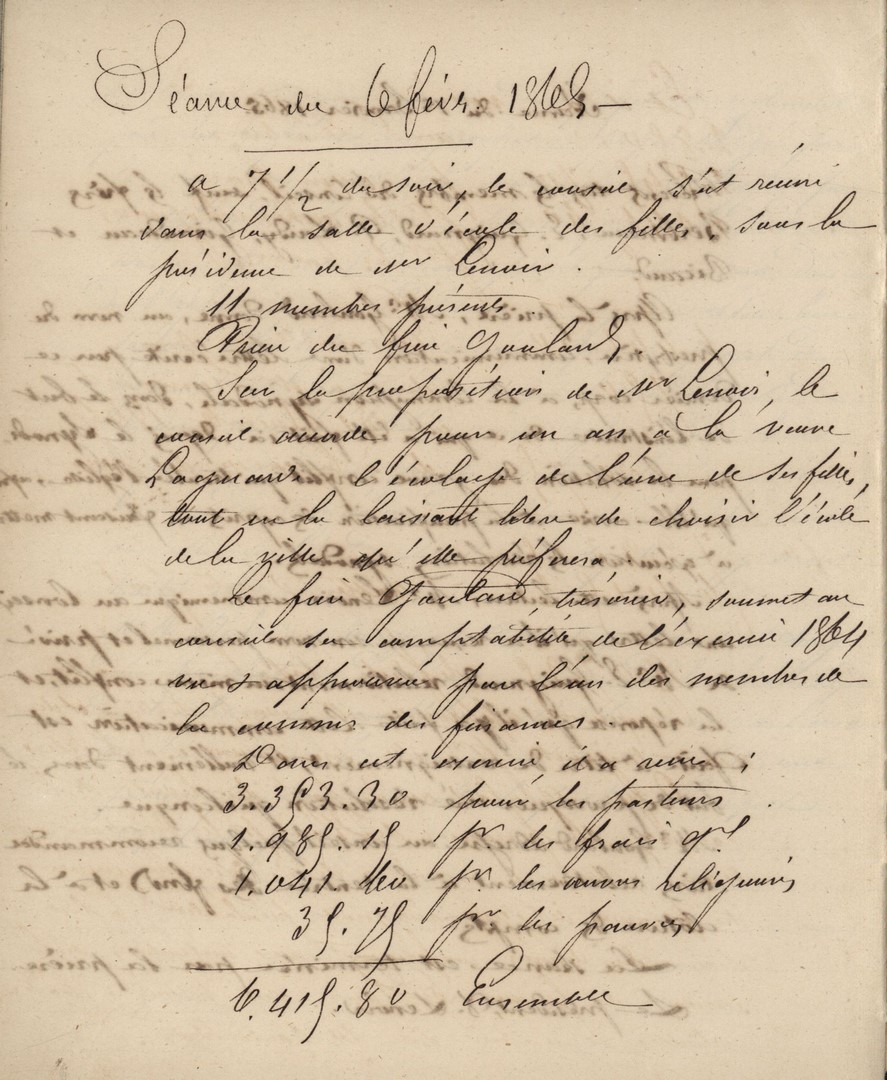 Séance du 6 févr. 1865 —
a 7 1/2 du soir, le conseil s'est réuni
dans la salle d'école des filles, sous la
présidence de Mr Lenoir.
11 membres présents
Prière du frère Goulard.
Sur la proposition de Mr Lenoir, le
conseil accorde pour un an à la veuve
Laguarde l'écolage de l'une de ses filles,
tout en la laissant libre de choisir l'école
de la ville qu'elle préfèrera.
Le frère Goulard, trésorier, soumet au
conseil sa comptabilité de l'exercice 1864
vue & approuvée par l'un des membres de
la commis. des finances.
Dans cet exercice, il a reçu :
3.353.30 pour les pasteurs
1.985.15 pr. les frais gx
1.041.60 pr. les œuvres religieuses
35.75 pr les pauvres
6.415.80 Ensemble